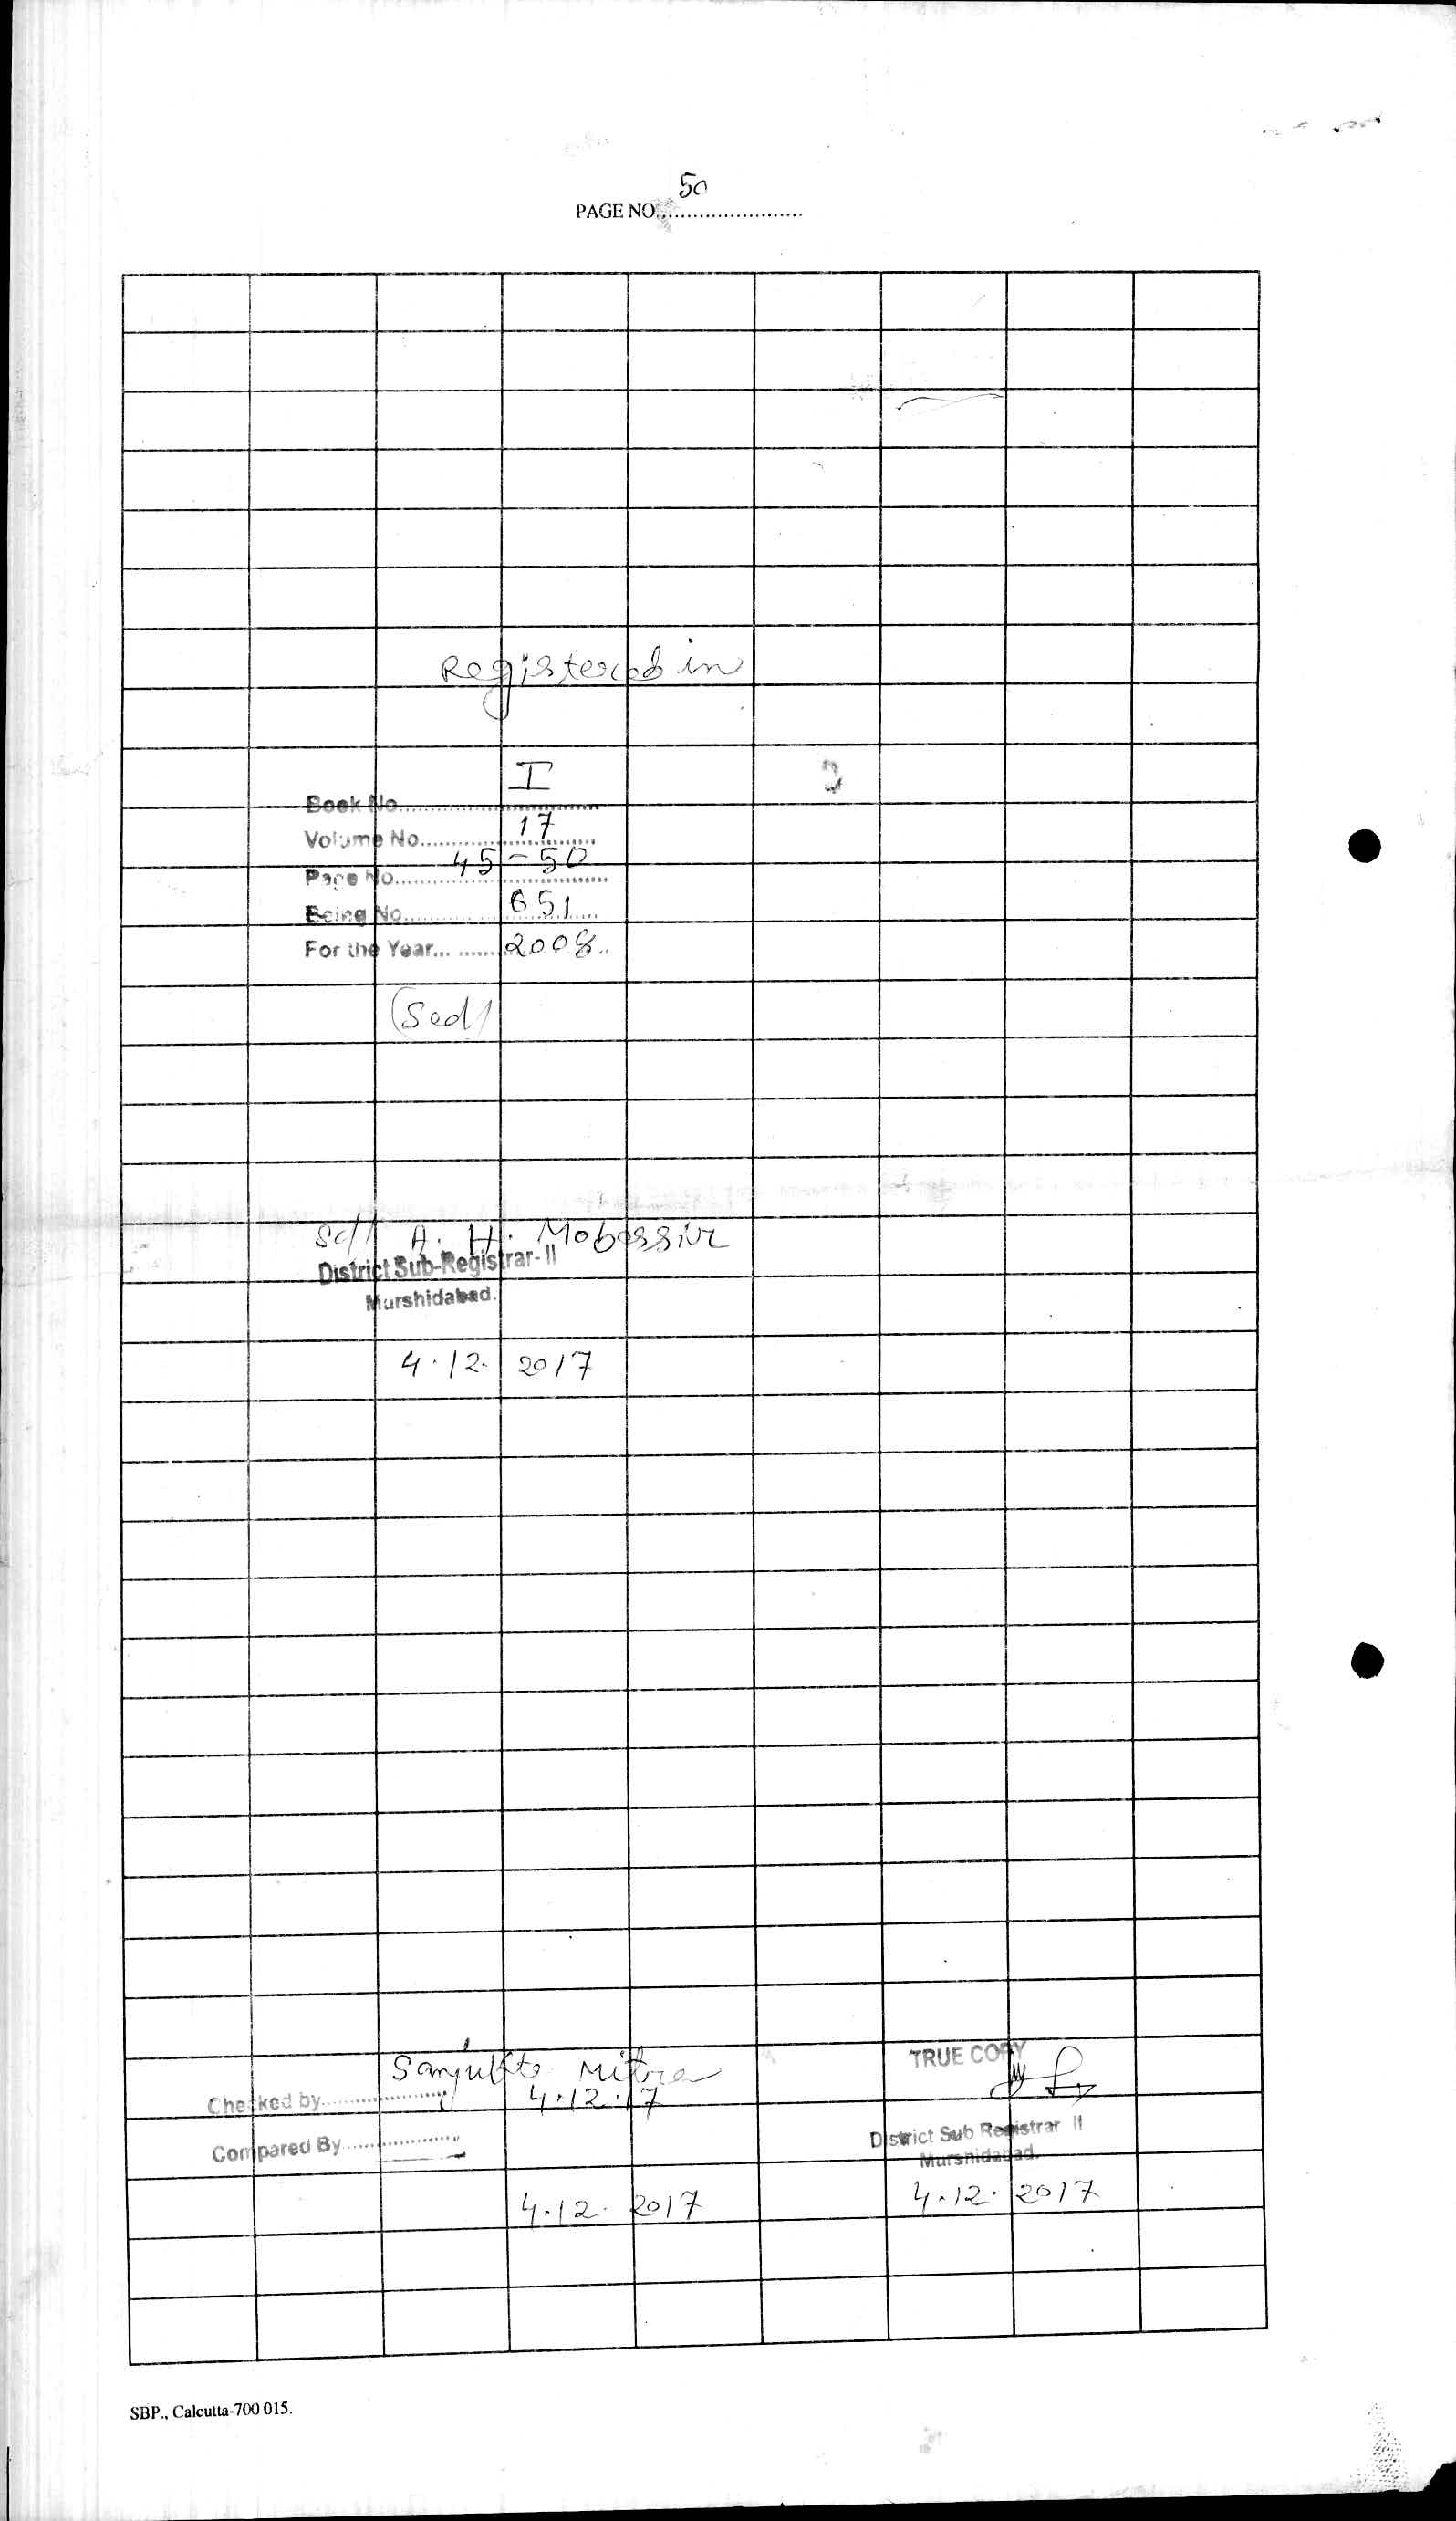 50
PAGE NO.........................
Registered in
Book No. I
Volume No. 17
Page No. 45-50
Being No. 651
For the Year... 2008
(Seal)
Sd/- A. H. Mobassir
District Sub-Registrar-II
Murshidabad.
4.12.2017
Sanjukta Mitra
Checked by 4.12.17
Compared By
4.12.2017
TRUE COPY
District Sub Registrar II
Murshidabad.
4.12.2017
SBP., Calcutta-700 015.